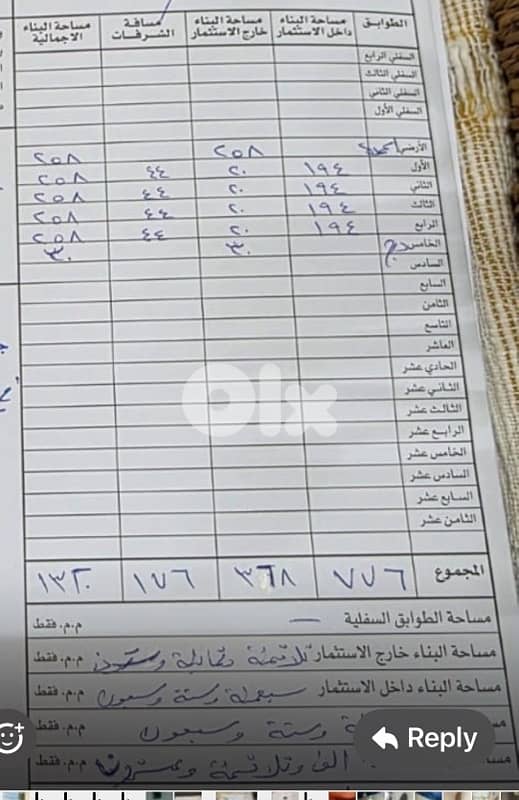 الطوابق مساحة البناء داخل الاستثمار مساحة البناء خارج الاستثمار مسافة الشرفات مساحة البناء الاجمالية
السفلي الرابع
السفلي الثالث
السفلي الثاني
السفلي الأول
الأرضي ٢٥٨ ٢٥٨
الأول ١٩٤ ٢٠ ٤٤ ٢٥٨
الثاني ١٩٤ ٢٠ ٤٤ ٢٥٨
الثالث ١٩٤ ٢٠ ٤٤ ٢٥٨
الرابع ١٩٤ ٢٠ ٤٤ ٢٥٨
الخامس ٣٠ ٣٠
السادس
السابع
الثامن
التاسع
العاشر
الحادي عشر
الثاني عشر
الثالث عشر
الرابع عشر
الخامس عشر
السادس عشر
السابع عشر
الثامن عشر
المجموع ٧٧٦ ٣٦٨ ١٧٦ ١٣٢٠
مساحة الطوابق السفلية — م.م. فقط
مساحة البناء خارج الاستثمار ثلاثمئة وثمانية وستون م.م. فقط
مساحة البناء داخل الاستثمار سبعمئة وستة وسبعون م.م. فقط
وستة وسبعون م.م. فقط
الف وثلاثمئة وعشرون م.م. فقط
olx
Reply